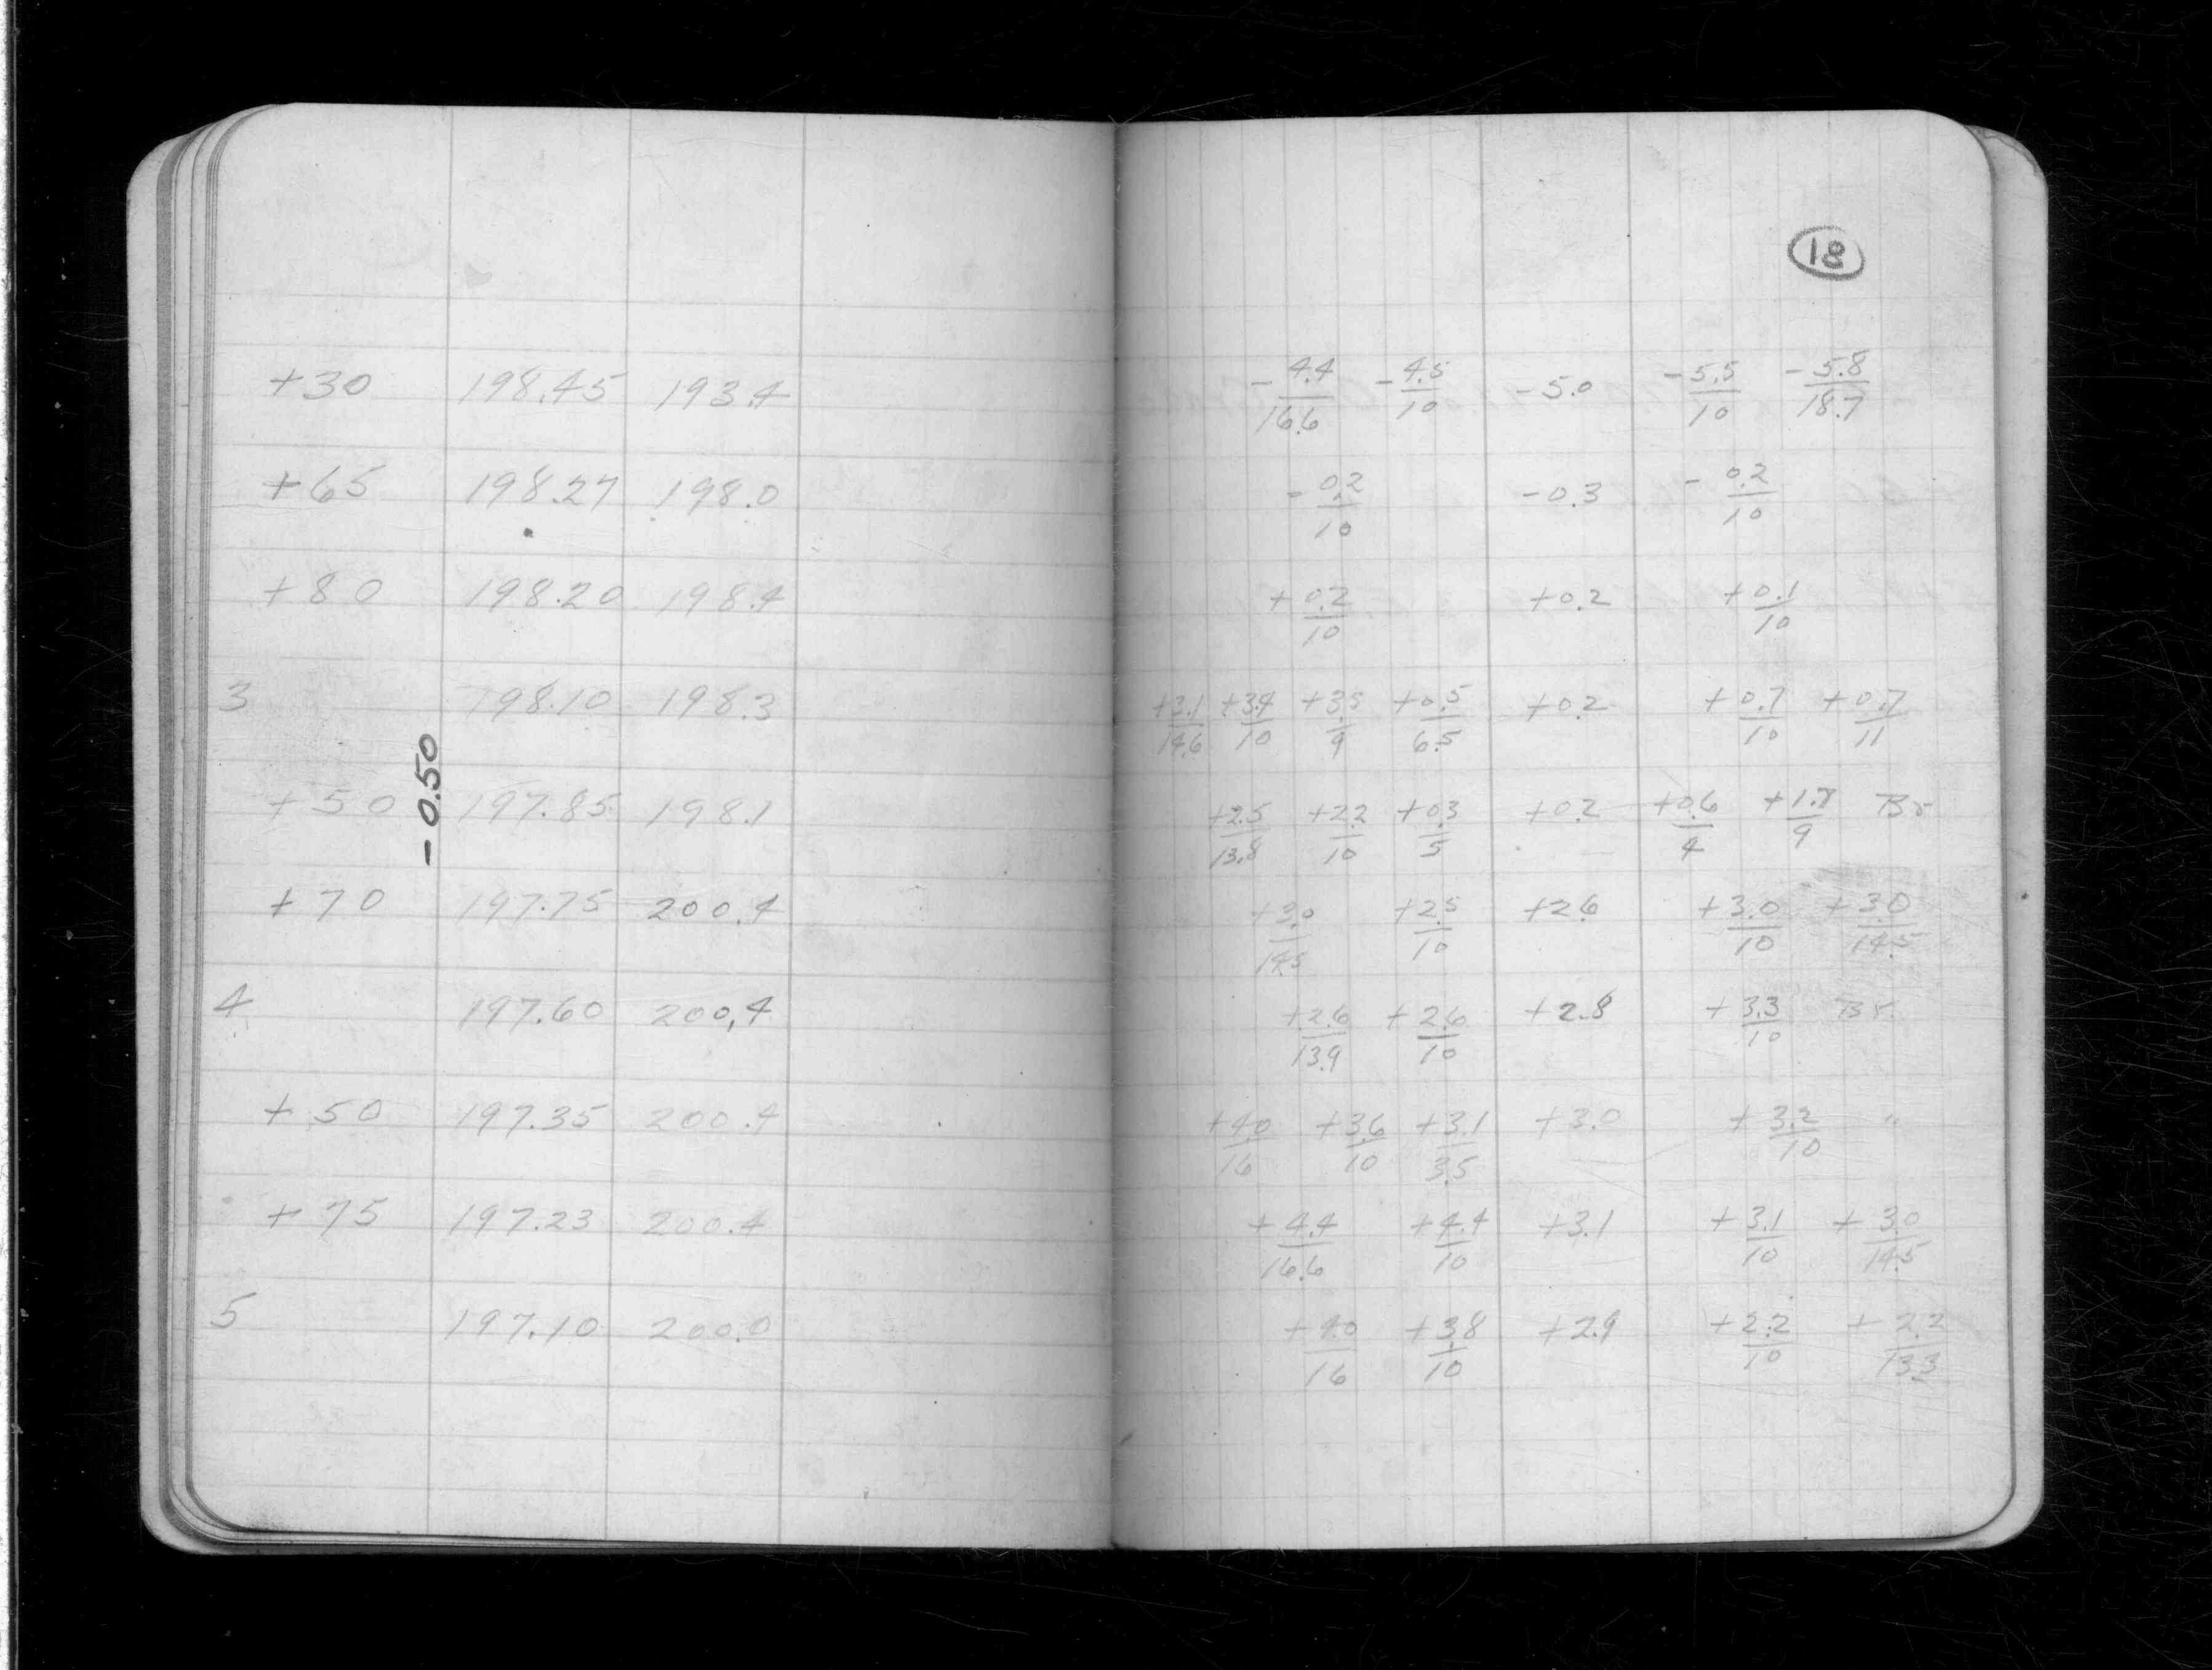 18
+30 198.45 193.4 -4.4/16.6 -4.5/10 -5.0 -5.5/10 -5.8/18.7
+65 198.27 198.0 -0.2/10 -0.3 -0.2/10
+80 198.20 198.4 +0.2/10 +0.2 +0.1/10
3 198.10 198.3 +3.1/14.6 +3.4/10 +3.5/9 +0.5/6.5 +0.2 +0.7/10 +0.7/11
-0.50
+50 197.85 198.1 +2.5/13.8 +2.2/10 +0.3/5 +0.2 +0.6/4 +1.7/9 Br
+70 197.75 200.4 +3.0/14.5 +2.5/10 +2.6 +3.0/10 +3.0/14.5
4 197.60 200.4 +2.6/13.9 +2.6/10 +2.8 +3.3/10 Br
+50 197.35 200.4 +4.0/16 +3.6/10 +3.1/3.5 +3.0 +3.2/10 "
+75 197.23 200.4 +4.4/16.6 +4.4/10 +3.1 +3.1/10 +3.0/14.5
5 197.10 200.0 +4.0/16 +3.8/10 +2.9 +2.2/10 +2.2/13.3